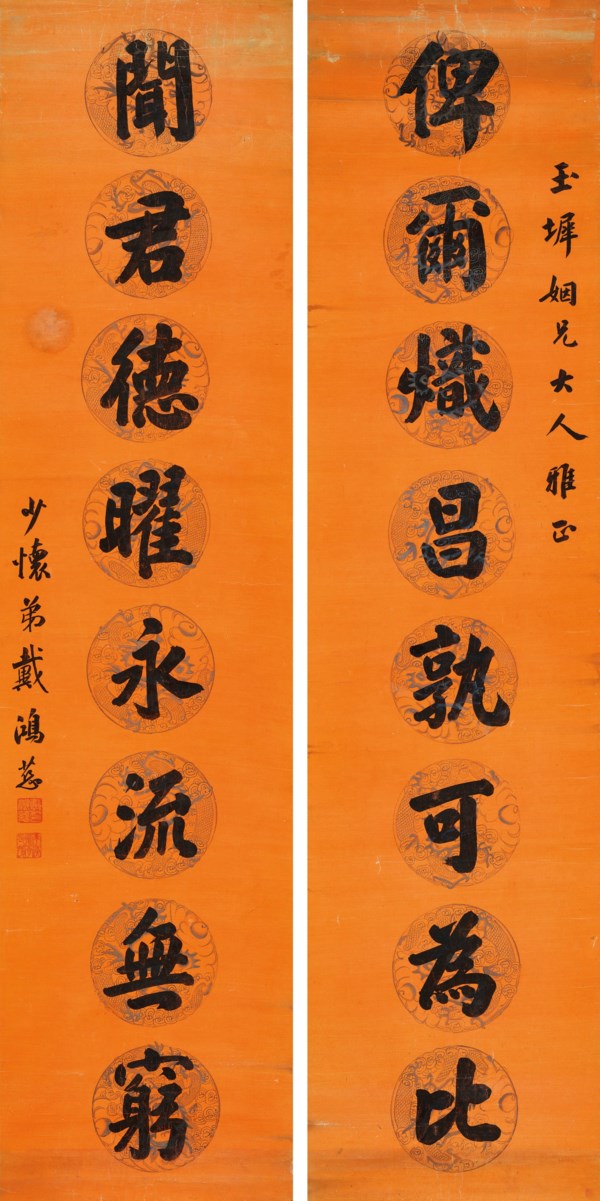 玉墀姻兄大人雅正
俾爾熾昌孰可為比
聞君德曜永流無窮
少懷弟戴鴻慈